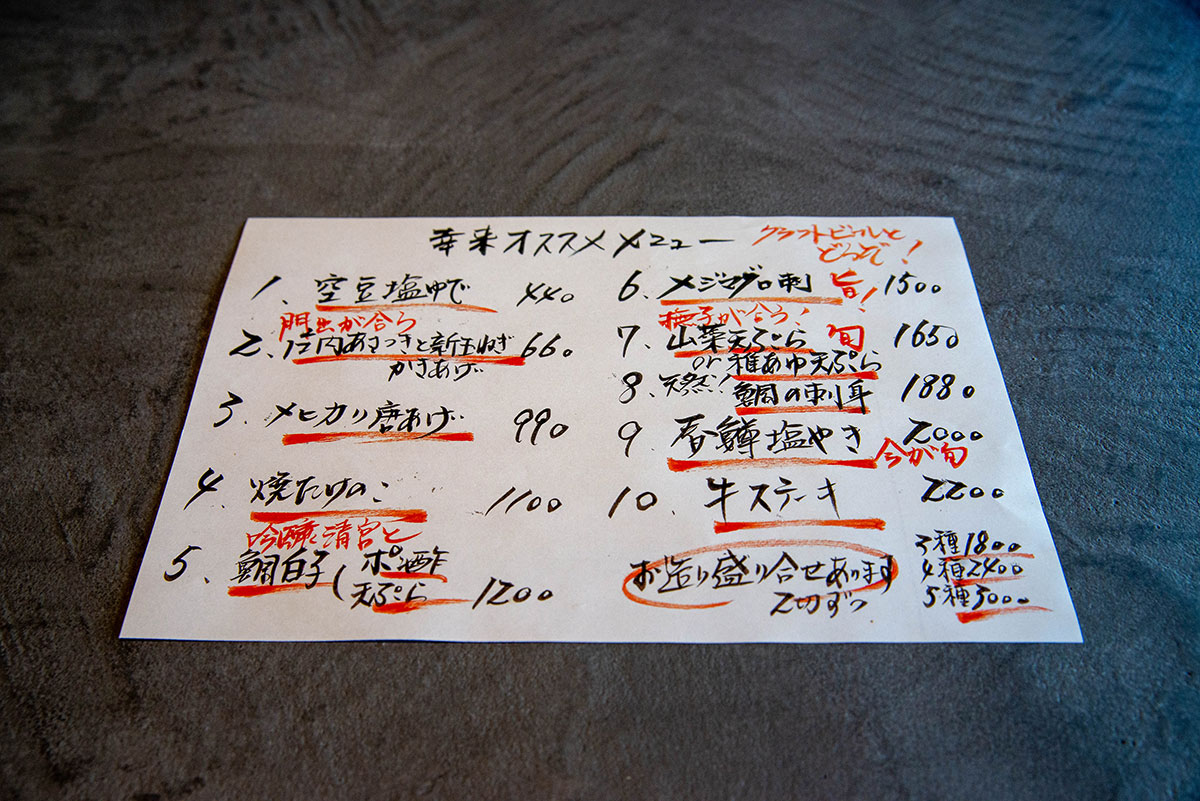 幸来オススメメニュー
クラフトビールと
どうぞ!
1、空豆塩ゆで 440
胆出が合う
2、庄内あさつきと新玉ねぎ 660
かきあげ
3、メヒカリ唐あげ 990
4、焼たけのこ 1100
吟醸清宮と
5、鯛白子(ポン酢 1200
天ぷら
6、メジマグロ刺 旨! 1500
撫子が合う!
7、山菜天ぷら 旬 1650
or稚あゆ天ぷら
8、天然!鯛の刺身 1880
9 春鱒塩やき 2000
今が旬
10、牛ステーキ 2200
お造り盛り合せあります
2切ずつ
3種1800
4種2400
5種3000